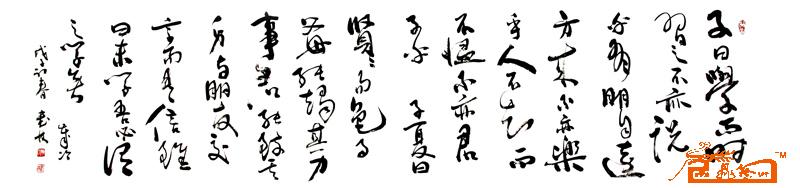 子曰學而時
習之不亦説
乎有朋自遠
方來不亦樂
乎人不知而
不愠不亦君
子乎 子夏曰
賢〻易色事
母能竭其力
事君能致其
身與朋友交
言而有信雖
曰未學吾必謂
之學矣